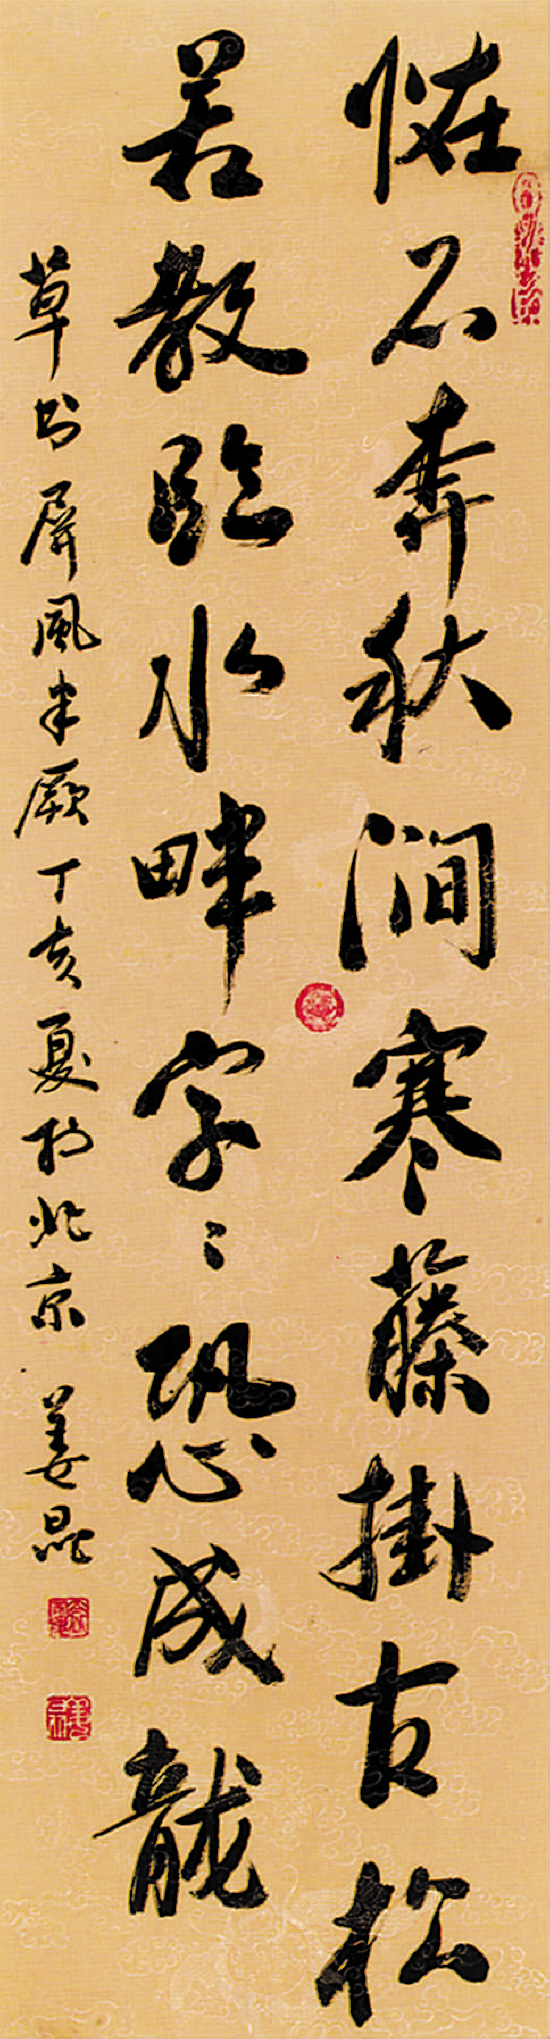 恠石奔秋澗寒藤掛古松
若教臨水畔字〻恐成龍
草书屏風半厥丁亥夏於北京 姜昆